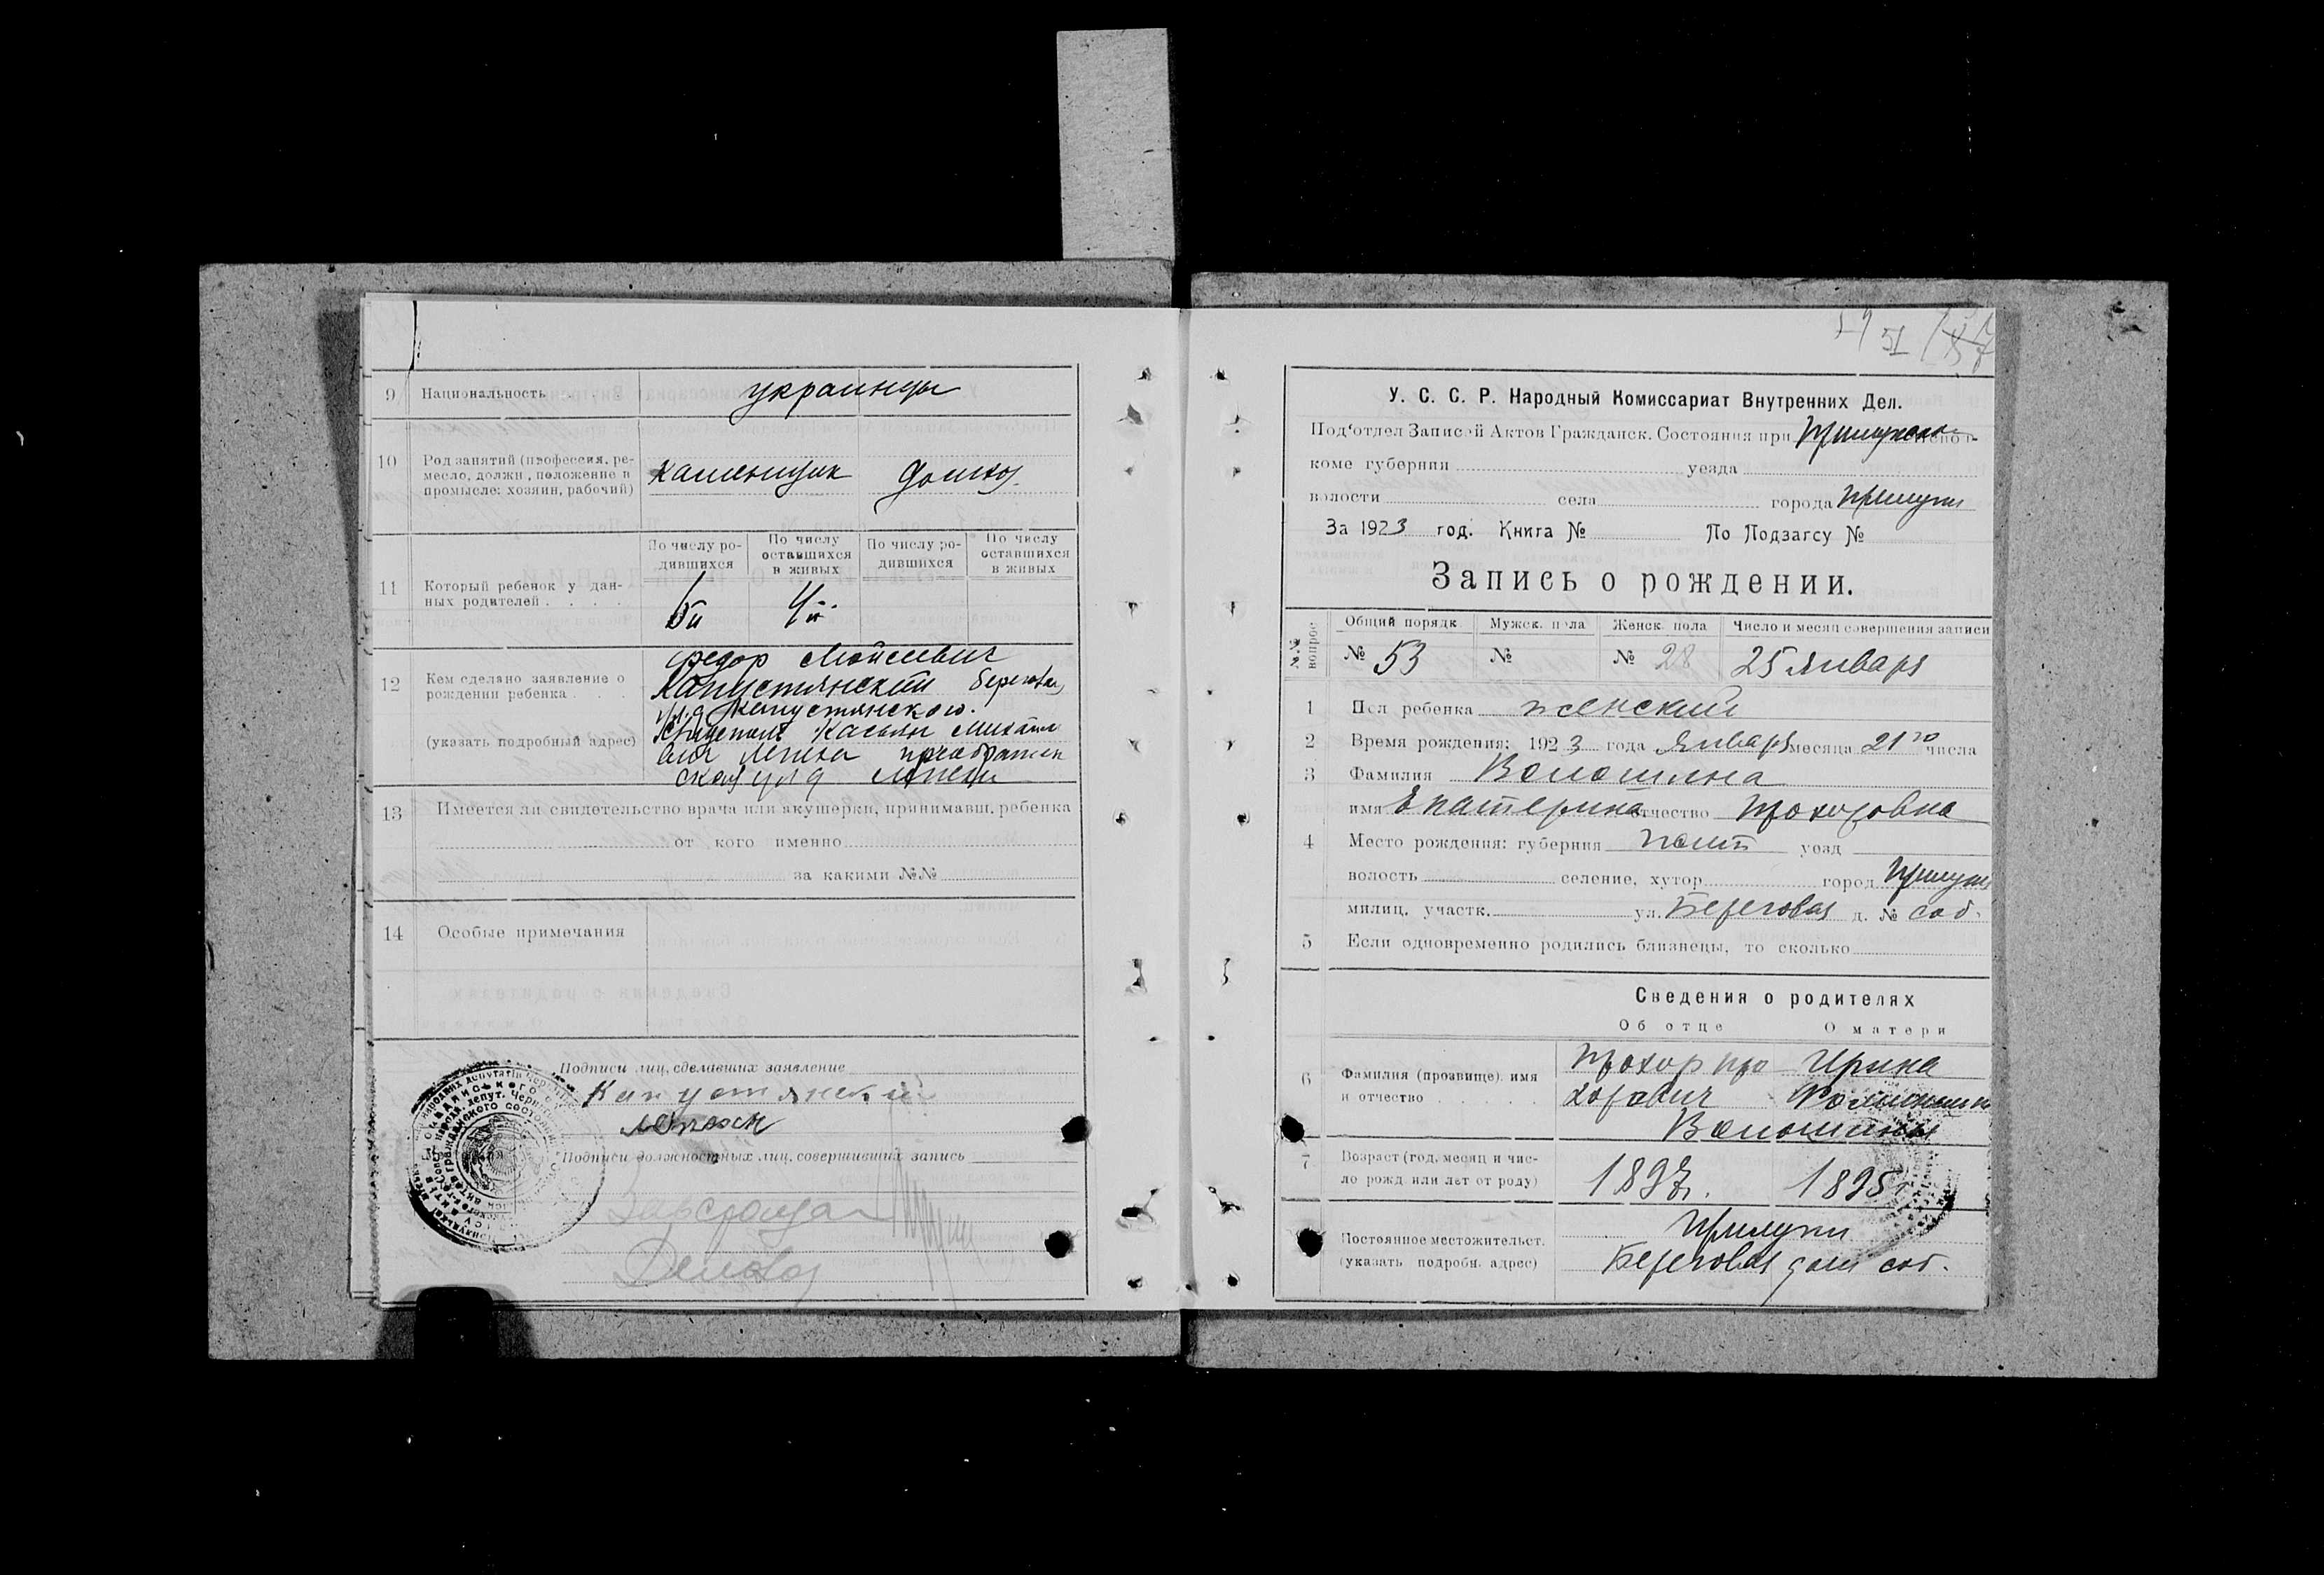 9 Национальность украинцы
10 Род занятий (профессия, ре-
месло, должн., положение в
промысле: хозяин, рабочий)
каменщик домхоз.
По числу ро-
дившихся
По числу
оставшихся
в живых
По числу ро-
дившихся
По числу
оставшихся
в живых
11 Который ребенок у дан-
ных родителей . . . .
5й 4й
12 Кем сделано заявление о
рождении ребенка . . .
(указать подробный адрес)
Федор Мойсеевич
Капустянский Береговая,
д Капустянского.
Касьян Михайл
преображен
ская ул д
13 Имеется ли свидетельство врача или акушерки, принимавш. ребенка
от кого именно
за какими №№
14 Особые примечания
Подписи лиц, сделавших заявление
Капустянский
Подписи должностных лиц, совершивших запись
51
У. С. С. Р. Народный Комиссариат Внутренних Дел.
Под'отдел Записей Актов Гражданск. Состояния при Прилукском Испол-
коме губернии уезда
волости села города Прилуки
За 1923 год. Книга № По Подзагсу №
Запись о рождении.
№№ вопрос
Общий порядк. Мужск. пола Женск. пола Число и месяц совершения записи
№ 53 № № 28 25 Января
1 Пол ребенка женский
2 Время рождения: 1923 года Января месяца 21го числа
3 Фамилия Волошина
имя Екатерина отчество Прохоровна
4 Место рождения: губерния Полт уезд
волость селение, хутор город Прилуки
милиц. участк. ул. Береговая д. № соб.
5 Если одновременно родились близнецы, то сколько
Сведения о родителях
Об отце О матери
6 Фамилия (прозвище), имя
и отчество . . . . .
Прохор Про
хорович
Ирина
Волошины
7 Возраст (год, месяц и чис-
ло рожд. или лет от роду)
1897г. 1895г
Постоянное местожительст.
(указать подробн. адрес)
Прилуки
Береговая дом соб.